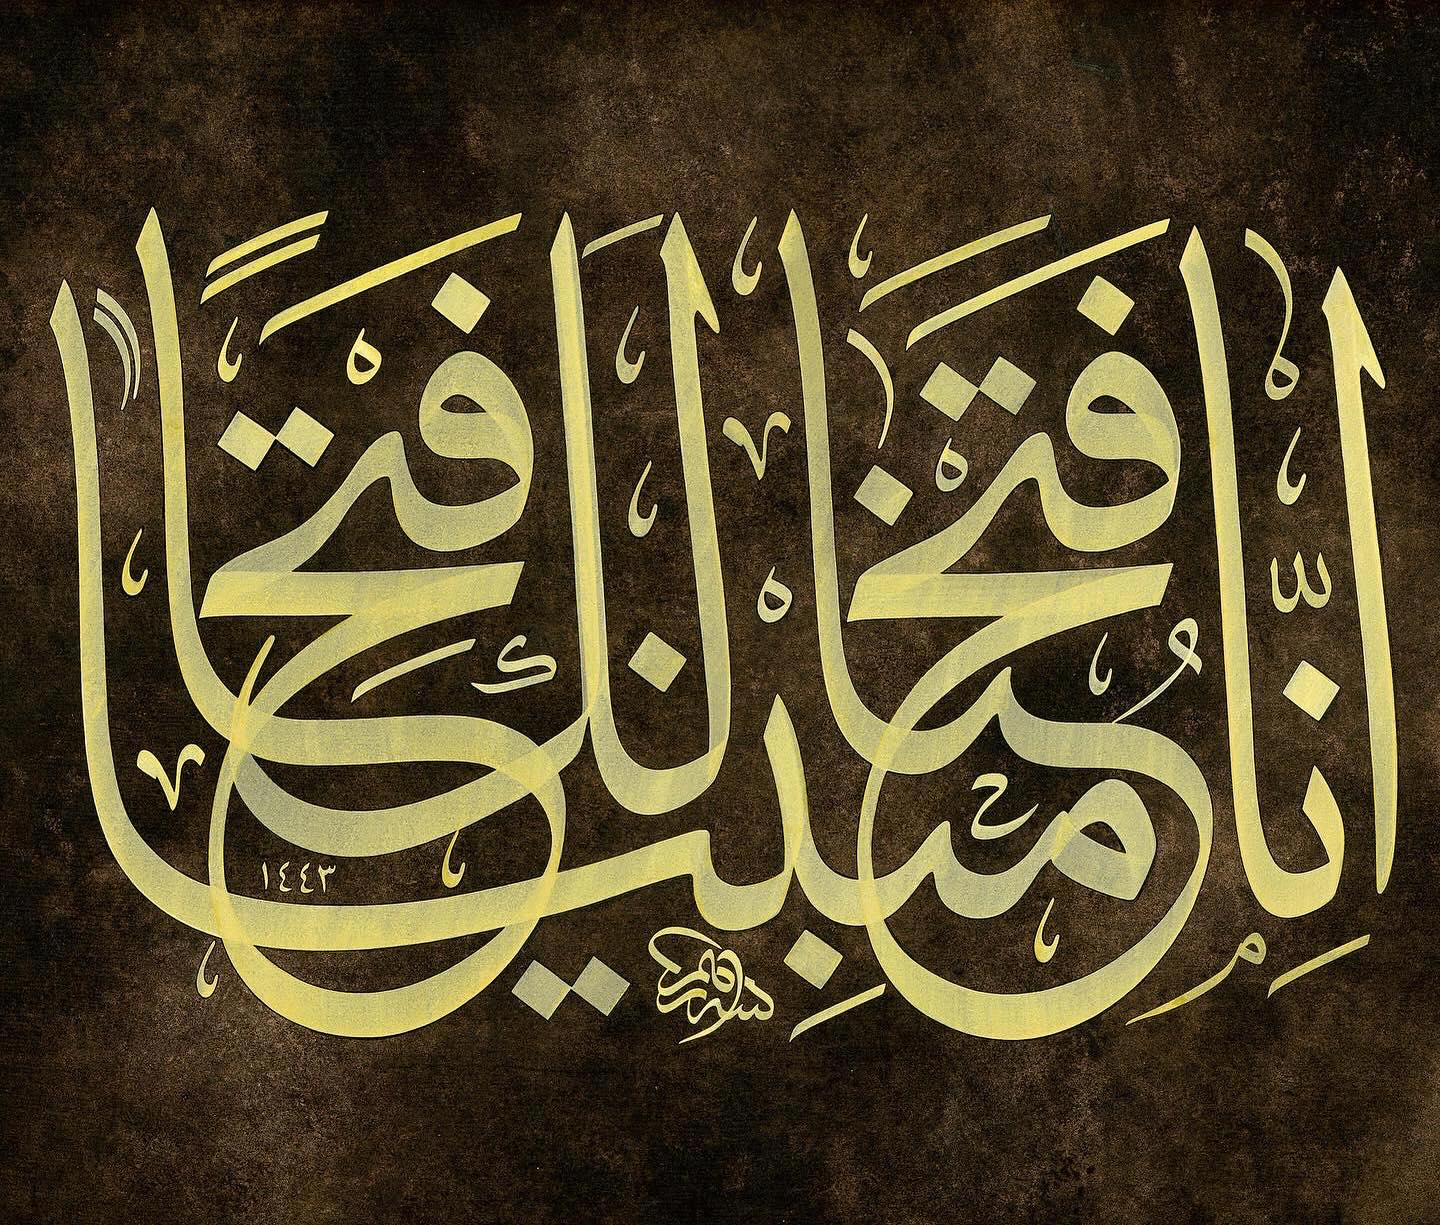 إِنَّا فَتَحْنَا لَكَ فَتْحًا مُبِينًا
١٤٤٣